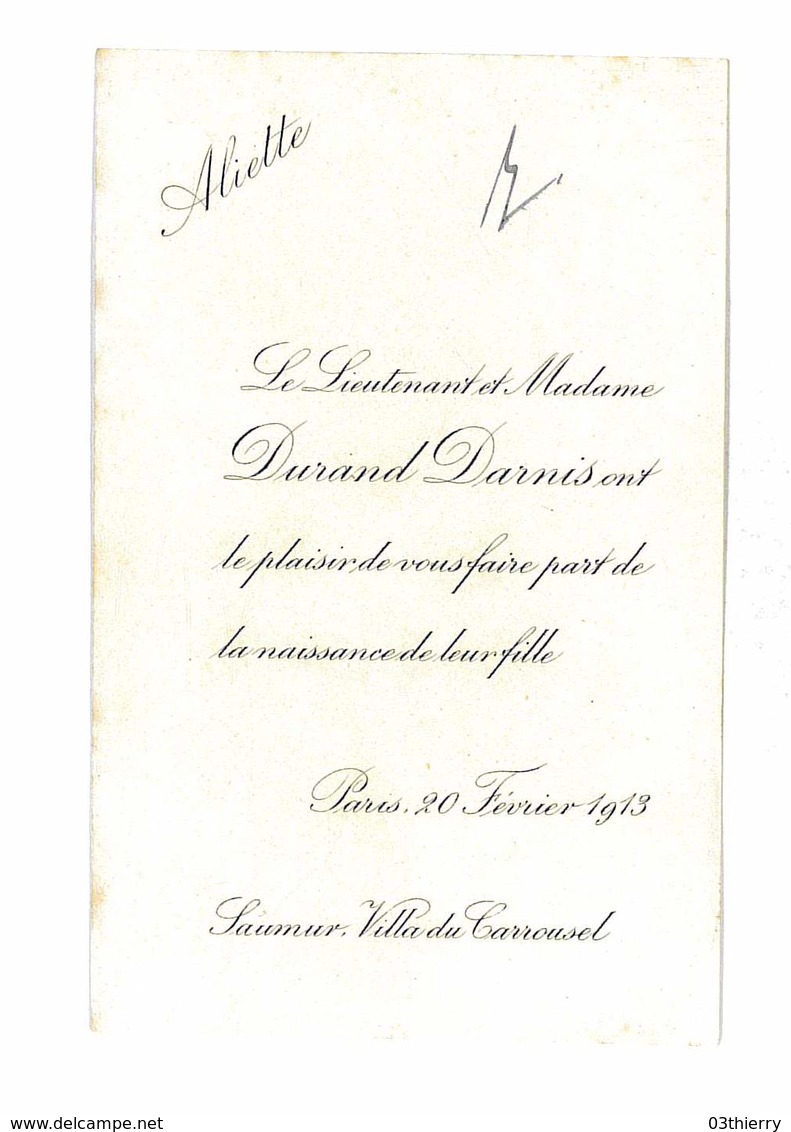 Aliette
Le Lieutenant et Madame
Durand Darnis ont
le plaisir de vous faire part de
la naissance de leur fille
Paris, 20 Février 1913
Saumur, Villa du Carrousel
www.delcampe.net
03thierry